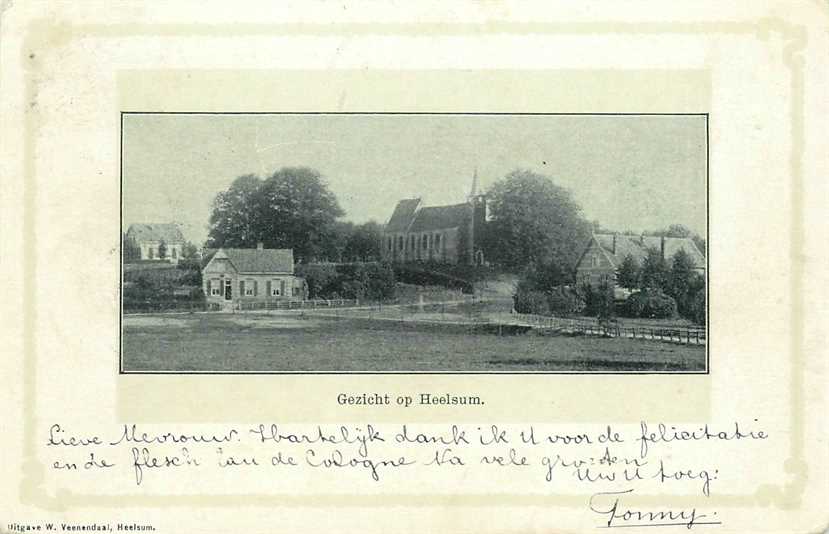 Gezicht op Heelsum.
Lieve Mevrouw. Hartelijk dank ik U voor de felicitatie
en de flesch Eau de Cologne Na vele groeten
Uw U toeg:
Tonny.
Uitgave W. Veenendaal, Heelsum.